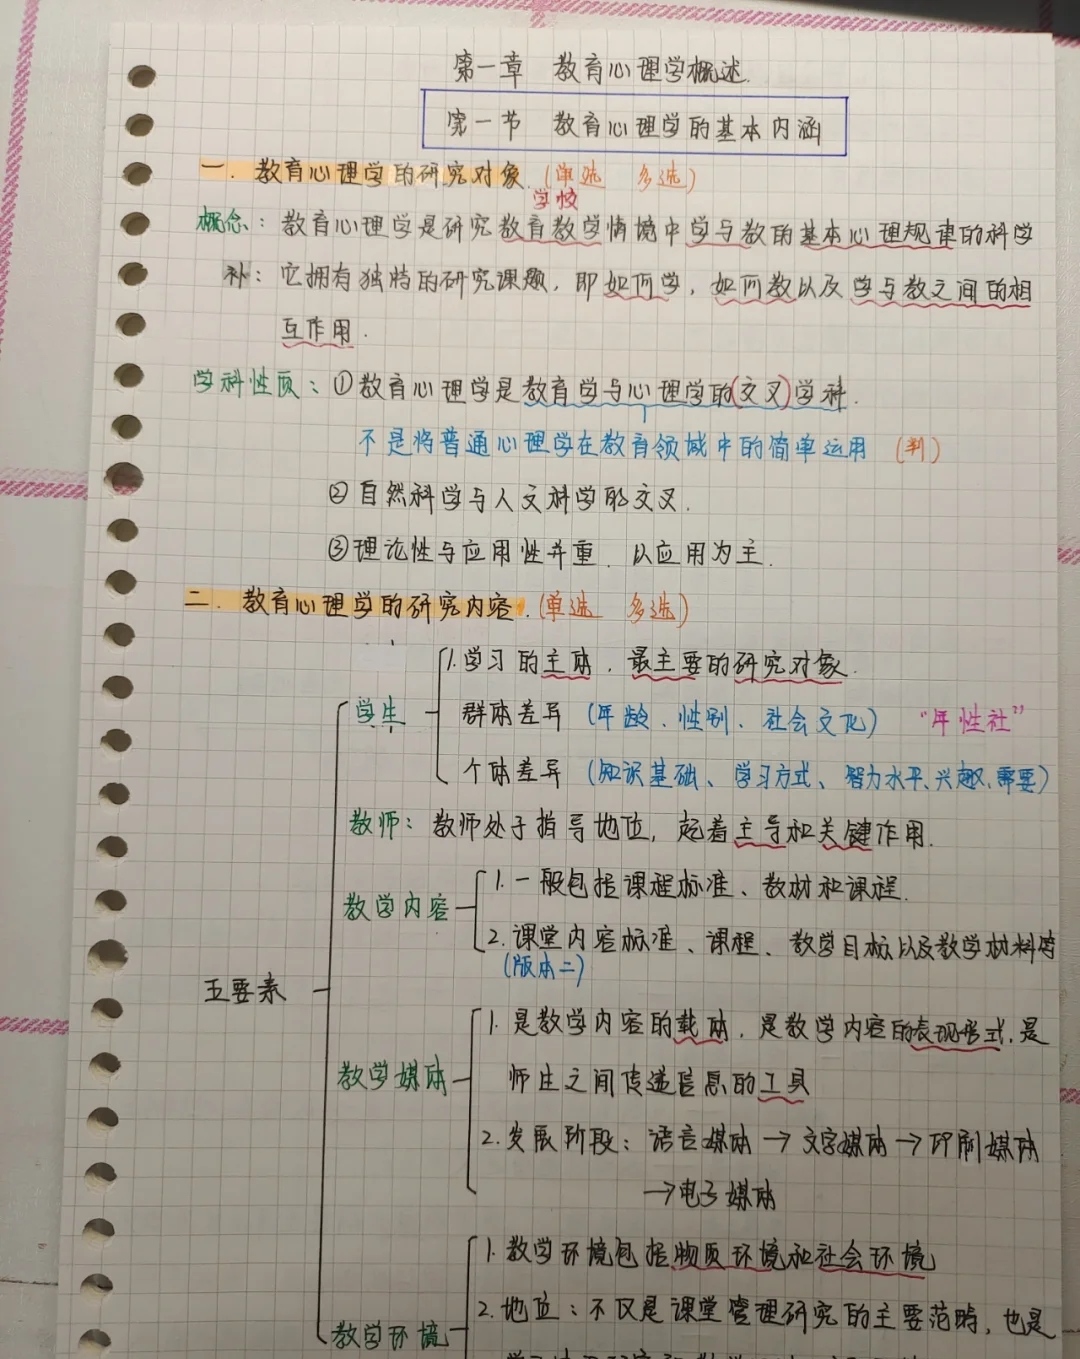 第一章 教育心理学概述.
第一节 教育心理学的基本内涵
一. 教育心理学的研究对象. (单选 多选)
学校
概念: 教育心理学是研究教育教学情境中学与教的基本心理规律的科学
补: 它拥有独特的研究课题, 即如何学, 如何教以及学与教之间的相
互作用.
学科性质: ①教育心理学是教育学与心理学的(交叉)学科.
不是将普通心理学在教育领域中的简单运用 (判)
②自然科学与人文科学的交叉.
③理论性与应用性并重. 以应用为主.
二. 教育心理学的研究内容. (单选 多选)
1.学习的主体, 最主要的研究对象.
学生 群体差异 (年龄、性别、社会文化) “年性社”
个体差异 (知识基础、学习方式、智力水平、兴趣、需要)
教师: 教师处于指导地位, 起着主导和关键作用.
1. 一般包括课程标准、教材和课程.
教学内容
2. 课堂内容标准、课程、教学目标以及教学材料等
(版本二)
五要素
1. 是教学内容的载体, 是教学内容的表现形式, 是
教学媒体 师生之间传递信息的工具
2. 发展阶段: 语言媒体→文字媒体→印刷媒体
→电子媒体
1. 教学环境包括物质环境和社会环境
2. 地位: 不仅是课堂管理研究的主要范畴, 也是
教学环境